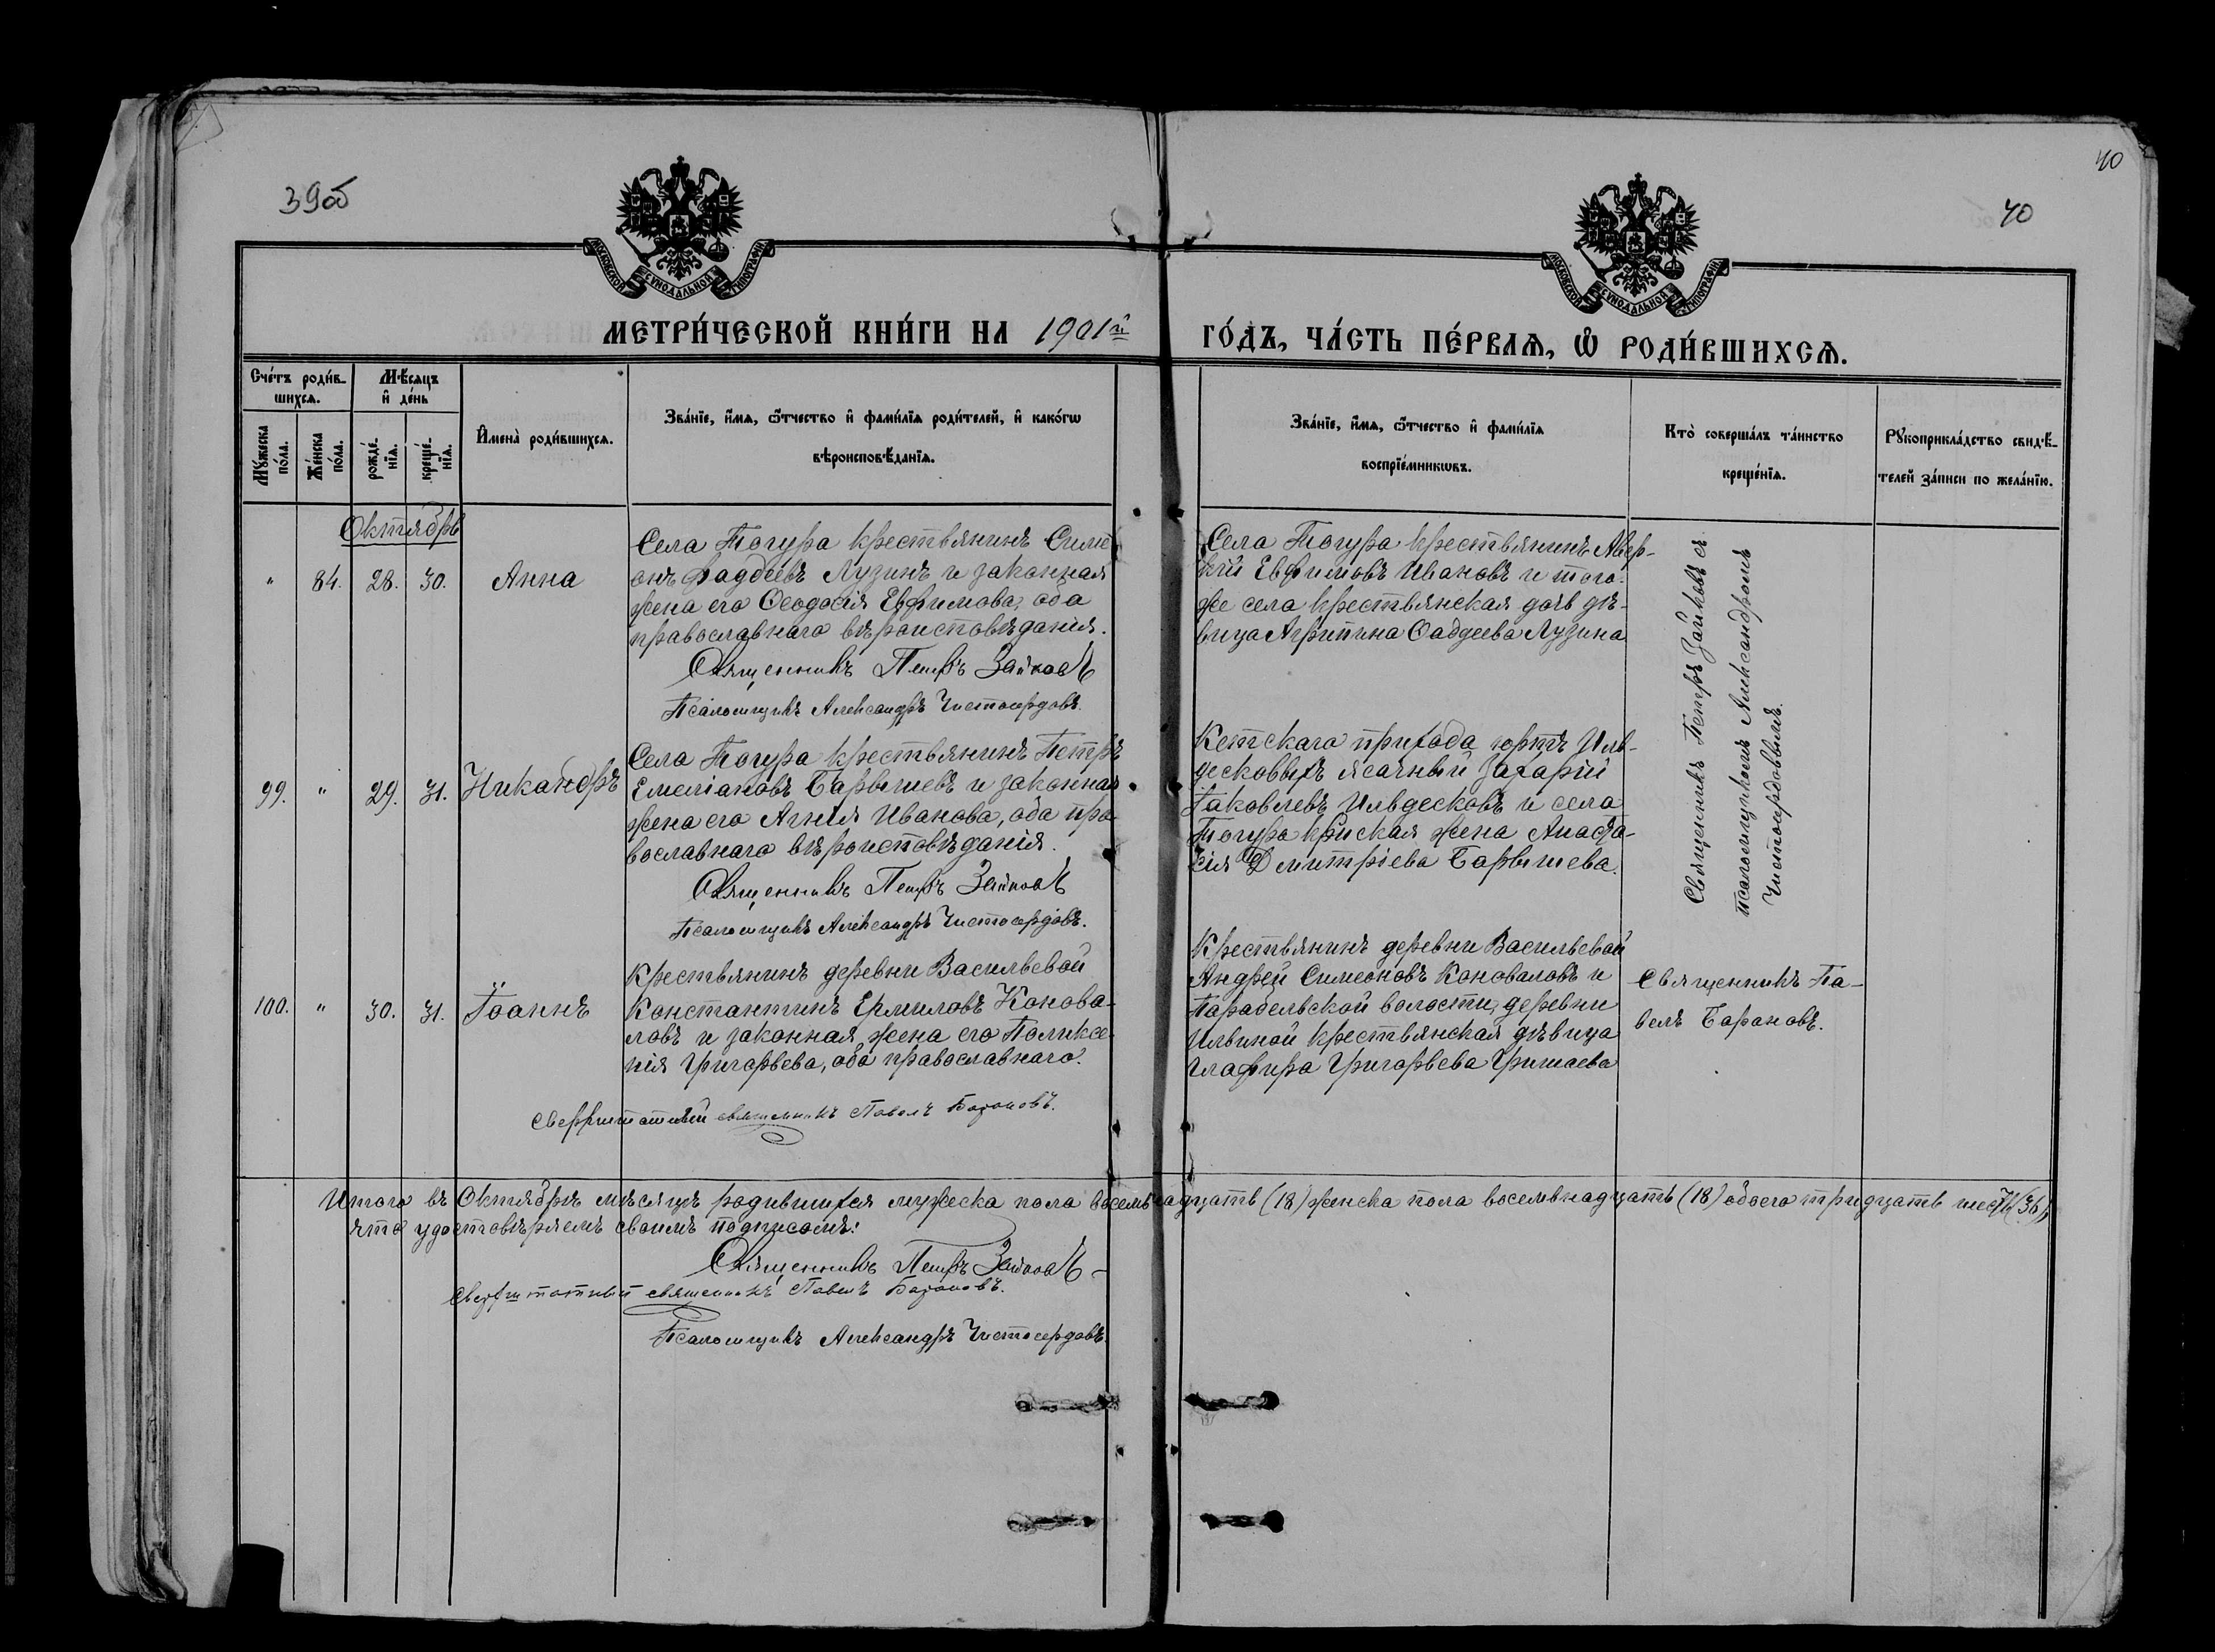 39об
40
40
МОСКОВСКОЙ СѴНОДАЛЬНОЙ ТИПОГРАФІИ
МОСКОВСКОЙ СѴНОДАЛЬНОЙ ТИПОГРАФІИ
МЕТРИ́ЧЕСКОЙ КНИ́ГИ НА 1901й
ГО́ДЪ, ЧА́СТЬ ПЕ́РВАЯ, Ѡ РОДИ́ВШИХСЯ.
Сче́тъ роди́в-
шихся.
Му́жеска
по́ла.
Же́нска
по́ла.
Мѣ́сяцъ
и де́нь
рожде́-
нїя.
креще́-
нїя.
Имена̀ роди́вшихся.
Зва́нїе, и́мя, ѻ́тчество и фами́лїя роди́телей, и како́гѡ
вѣроисповѣ́данїя.
Зва́нїе, и́мя, ѻ́тчество и фами́лїя
воспрїе́мникѡвъ.
Кто̀ соверша́лъ та́инство
креще́нїя.
Рꙋкоприкла́дство свидѣ́-
телей за́писи по жела́нїю.
Октябрь
" 84. 28. 30. Анна
Села Тогура крестьянинъ Симе
онъ Фаддеевъ Лузинъ и законная
жена его Ѳеодосія Евфимова, оба
православнаго вѣроисповѣданія.
Священникъ Петръ Зайковъ
Псаломщикъ Александръ Чистосердовъ.
Села Тогура крестьянинъ Авер-
кій Евфимовъ Ивановъ и того-
же села крестьянская дочь дѣ-
вица Агрипина Ѳаддеева Лузина
Священникъ Петръ Зайковъ съ
псаломщикомъ Александромъ
Чистосердовымъ.
99. " 29. 31. Никандръ
Села Тогура крестьянинъ Петръ
Емеліановъ Барышевъ и законная
жена его Агнія Иванова, оба пра-
вославнаго вѣроисповѣданія.
Священникъ Петръ Зайковъ
Псаломщикъ Александръ Чистосердовъ.
Кетскаго прихода юртъ Иль-
десковыхъ ясачный Захарій
Іаковлевъ Ильдесковъ и села
Тогура кр̃нская жена Анаста-
сія Дмитріева Барышева.
100. " 30. 31. Іоаннъ
Крестьянинъ деревни Васильевой
Константинъ Ермиловъ Конова-
ловъ и законная жена его Поликсе-
нія Григорьева, оба православнаго.
Сверхштатный священникъ Павелъ Барановъ.
Крестьянинъ деревни Васильевой
Андрей Симеоновъ Коноваловъ и
Парабельской волости, деревни
Ильиной крестьянская дѣвица
Глафира Григорьева Гришаева
Священникъ Па-
велъ Барановъ.
Итого въ Октябрѣ мѣсяцѣ родившихся мужеска пола восемьнадцать (18) женска пола восемьнадцать (18) обоего тридцать шесть (36),
что удостовѣряемъ своимъ подписомъ:
Священникъ Петръ Зайковъ
Сверхштатный священникъ Павелъ Барановъ.
Псаломщикъ Александръ Чистосердовъ.